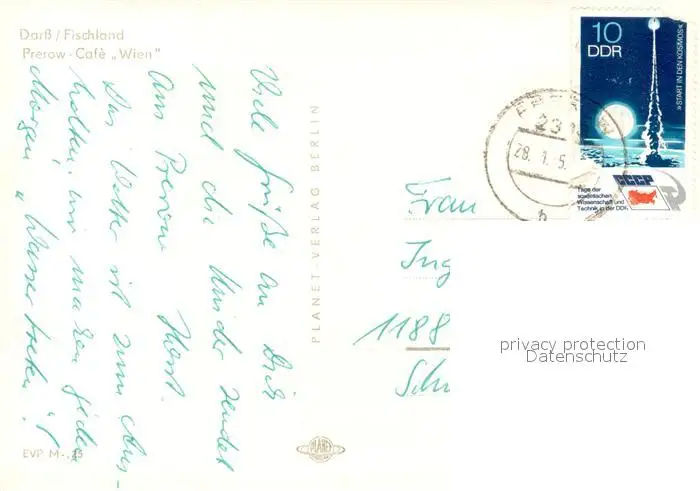 Darß / Fischland
Prerow - Cafè „Wien"
Viele Grüße an Dich
und die Kinder sendet
aus Prerow Horst.
Das Wetter ist zum Aus-
halten, wir machen jeden
Morgen „Wasser treten"!
EVP M -,25
PLANET-VERLAG BERLIN
PLANET
10
DDR
»START IN DEN KOSMOS«
CCCP
Tage der
sowjetischen
Wissenschaft und
Technik in der DDR
23
28. 1.-5.
Frau
Ing
1188
Sch
privacy protection
Datenschutz